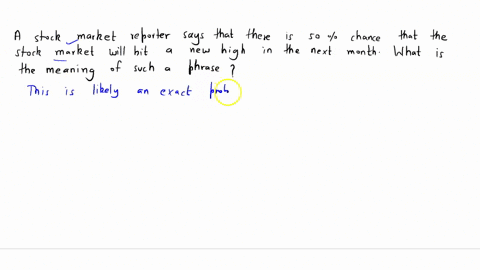 A stock market reporter says that there is 50 % chance that the
stock market will hit a new high in the next month. What is
the meaning of such a phrase ?
This is likely an exact prob